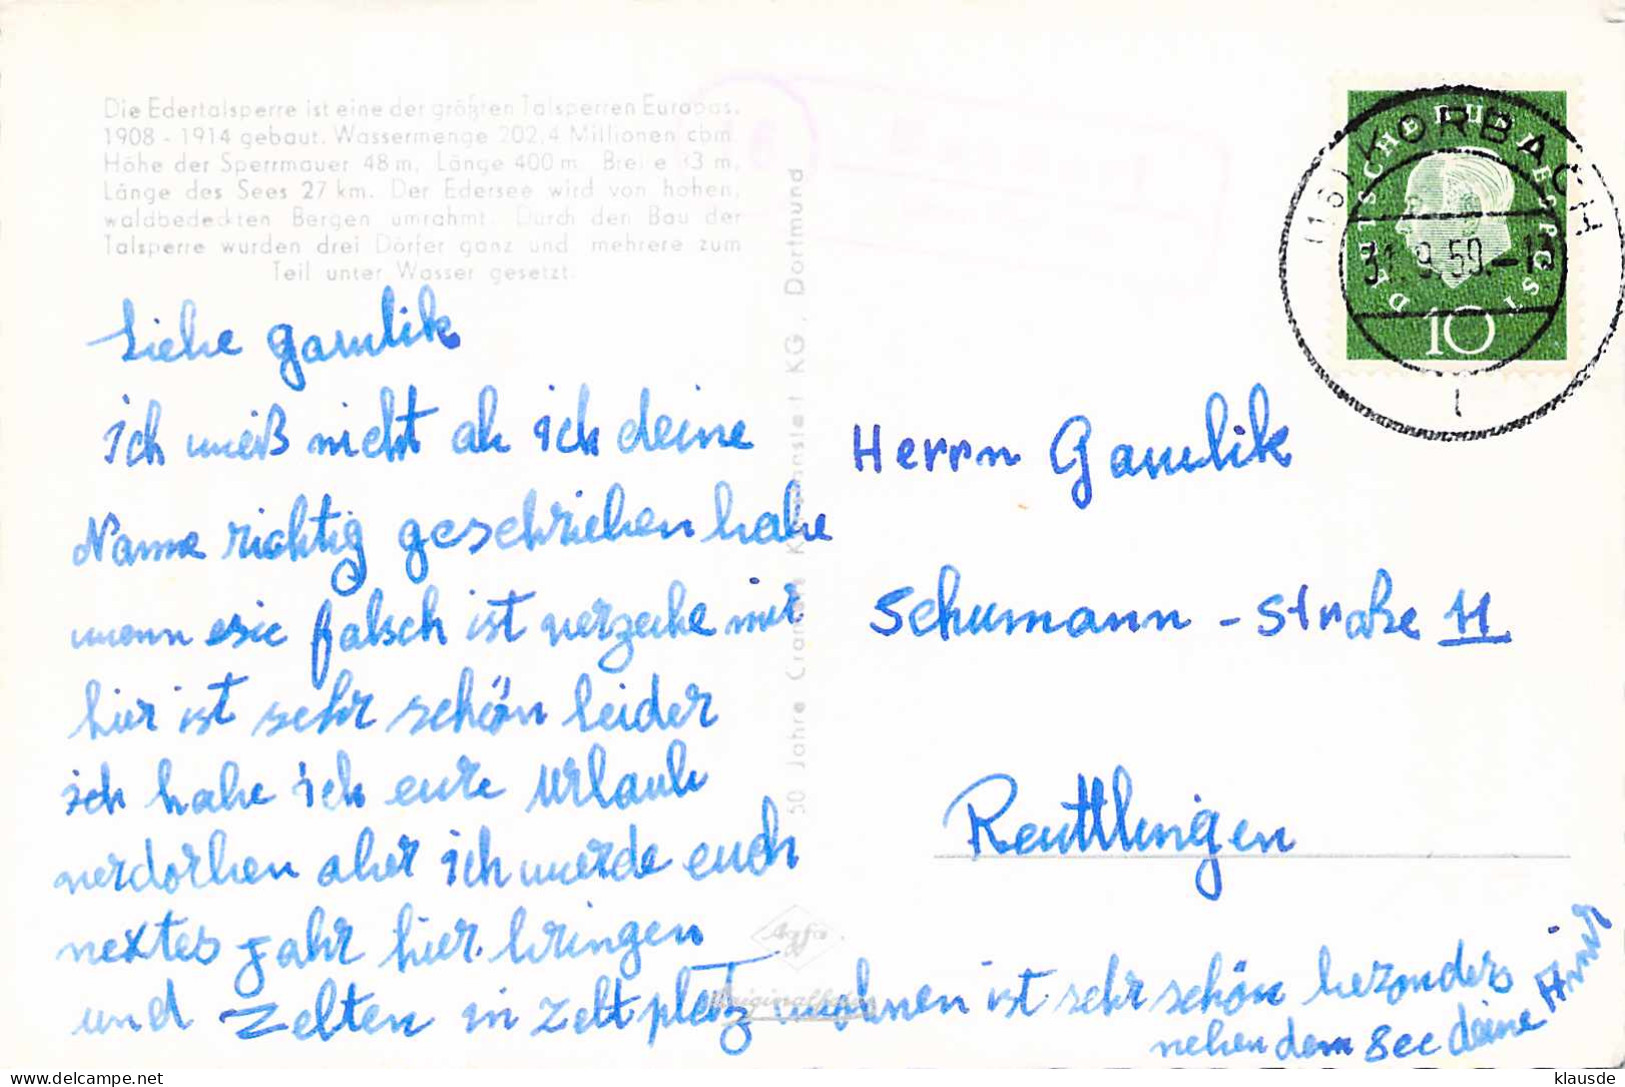 Die Edertalsperre ist eine der größten Talsperren Europas.
1908 - 1914 gebaut. Wassermenge 202,4 Millionen cbm.
Höhe der Sperrmauer 48 m. Länge 400 m. Breite 33 m.
Länge des Sees 27 km. Der Edersee wird von hohen,
waldbedeckten Bergen umrahmt. Durch den Bau der
Talsperre wurden drei Dörfer ganz und mehrere zum
Teil unter Wasser gesetzt.
Liebe Gawlik
ich weiß nicht ab ich deine
Name richtig geschrieben habe
wenn esie falsch ist verzeihe mir
hier ist sehr schön leider
ich habe ich eure Urlaub
verdorben aber ich werde euch
nextes Jahr hier bringen
und Zelten in zeltpletz wohnen ist sehr schön bezonders
neben dem See deine
50 Jahre Cramers Kunstanstalt KG, Dortmund
Agfa
Originalfoto
DEUTSCHE BUNDESPOST
10
(16) KORBACH
31.9.59.-13
1
Herrn Gawlik
Schumann-Straße 11
Reuttlingen
klausde